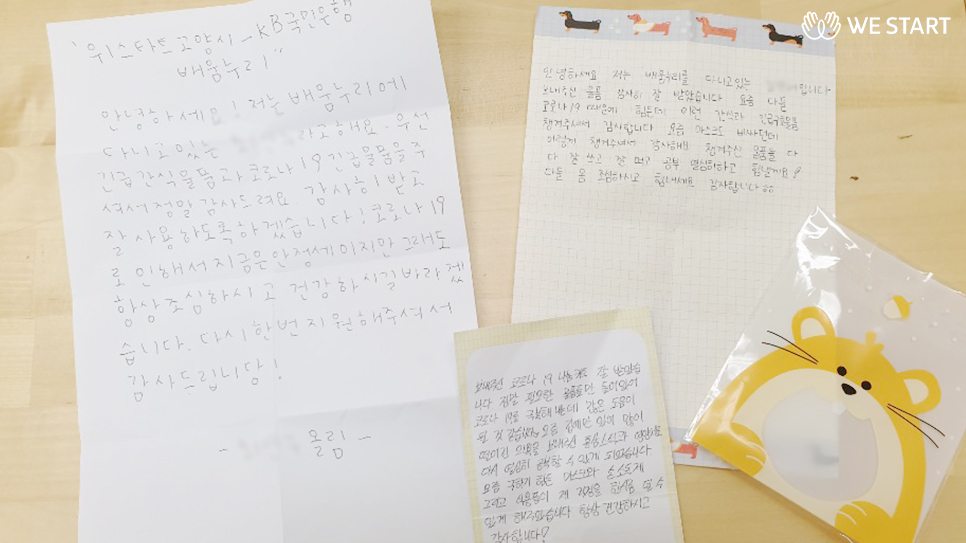 WE START
"위스타트고양시-KB국민은행
배움누리"
안녕하세요! 저는 배움누리에
다니고 있는 라고해요. 우선
긴급간식물품과 코로나19긴급물품을주
셔서 정말 감사드려요. 감사히 받고
잘 사용하도록하겠습니다! 코로나19
로 인해서 지금은 안정세이지만 그래도
항상조심하시고 건강하시길바라겠
습니다. 다시한번 지원해주셔서
감사드립니당!
- 올림 -
안녕하세요 저는 배움누리를 다니고있는 입니다
보내주신 물품 감사히 잘 받았습니다 요즘 다들
코로나19 때문에 힘든데 이런 간식과 긴급물품을
챙겨주셔서 감사합니다 요즘 마스크도 비싸던데
이렇게 챙겨주셔서 감사해요 챙겨주신 물품들 다
다 잘 쓰고 잘 먹고 공부 열심히하고 힘낼게요
다들 몸 조심하시고 힘내세요 감사합니다
보내주신 코로나 19 나눔키트 잘 받았습
니다 정말 필요한 물품들만 들어있어
코로나 19를 극복해 내는데 많은 도움이
될 것 같습니다 요즘 집에만 있어 많이
떨어진 의욕을 보내주신 간식과
다시 열심히 할 수 있게 되었습니다
요즘 구하기 힘든 마스크와 손소독제
그리고 식용품이 제 걱정을 한시름 덜 수
있게 해주었습니다 항상 건강하시고
감사합니다!